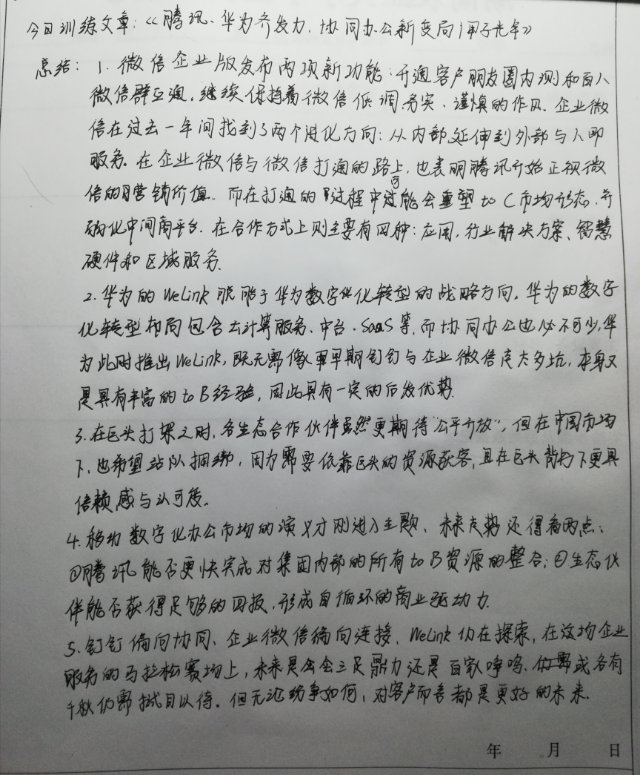 今日训练文章：《腾讯、华为齐发力，协同办公新变局|甲子光年》
总结：1. 微信企业版发布两项新功能：开通客户朋友圈内测和百人
微信群互通，继续保持着微信低调务实、谨慎的作风。企业微
信在过去一年间找到了两个进化方向：从内部延伸到外部与人即
服务。在企业微信与微信打通的路上，也表明腾讯开始正视微
信的营销价值。而在打通的过程中可能会重塑 to C 市场形态，并
弱化中间商平台。在合作方式上则主要有四种：应用、行业解决方案、智慧
硬件和区域服务。
2. 华为的 WeLink 服膺于华为数字化转型的战略方向，华为的数字
化转型布局包含云计算服务、中台、SaaS 等，而协同办公也必不可少，华
为此时推出 WeLink，既无需像早期钉钉与企业微信走太多坑，本身又
是具有丰富的 to B 经验，因此具有一定的后发优势。
3. 在巨头打擂之时，各生态合作伙伴虽然更期待“公平开放”，但在中国市场
下，也希望站队捆绑，因为需要依靠巨头的资源获客，且在巨头背书下更具
信赖感与认可度。
4. 移动数字化办公市场的演义才刚进入主题，未来走势还得看两点：
①腾讯能否更快完成对集团内部的所有 to B 资源的整合；②生态伙
伴能否获得足够的回报，形成自循环的商业驱动力。
5. 钉钉偏向协同、企业微信偏向连接、WeLink 仍在探索，在这场企业
服务的马拉松赛场上，未来是会三足鼎力还是百家争鸣，或各有
千秋仍需拭目以待。但无论纷争如何，对客户而言都是更好的未来。
年 月 日